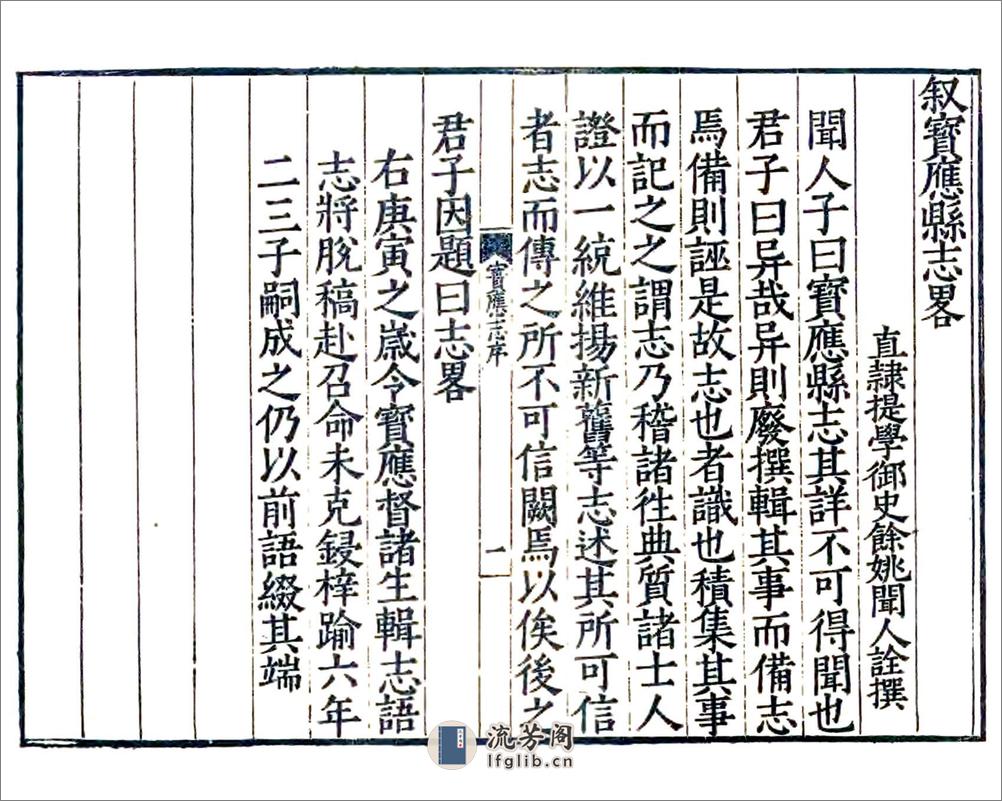 叙寶應縣志畧
直隷提學御史餘姚聞人詮撰
聞人子曰寶應縣志其詳不可得聞也
君子曰异哉异則廢撰輯其事而備志
焉備則誣是故志也者識也積集其事
而記之之謂志乃稽諸徃典質諸士人
證以一統維揚新舊等志述其所可信
者志而傳之所不可信闕焉以俟後之
寶應志序
一
君子因題曰志畧
右庚寅之歲令寶應督諸生輯志語
志將脫稿赴召命未克鋟梓踰六年
二三子嗣成之仍以前語綴其端
流芳阁
lfglib.cn